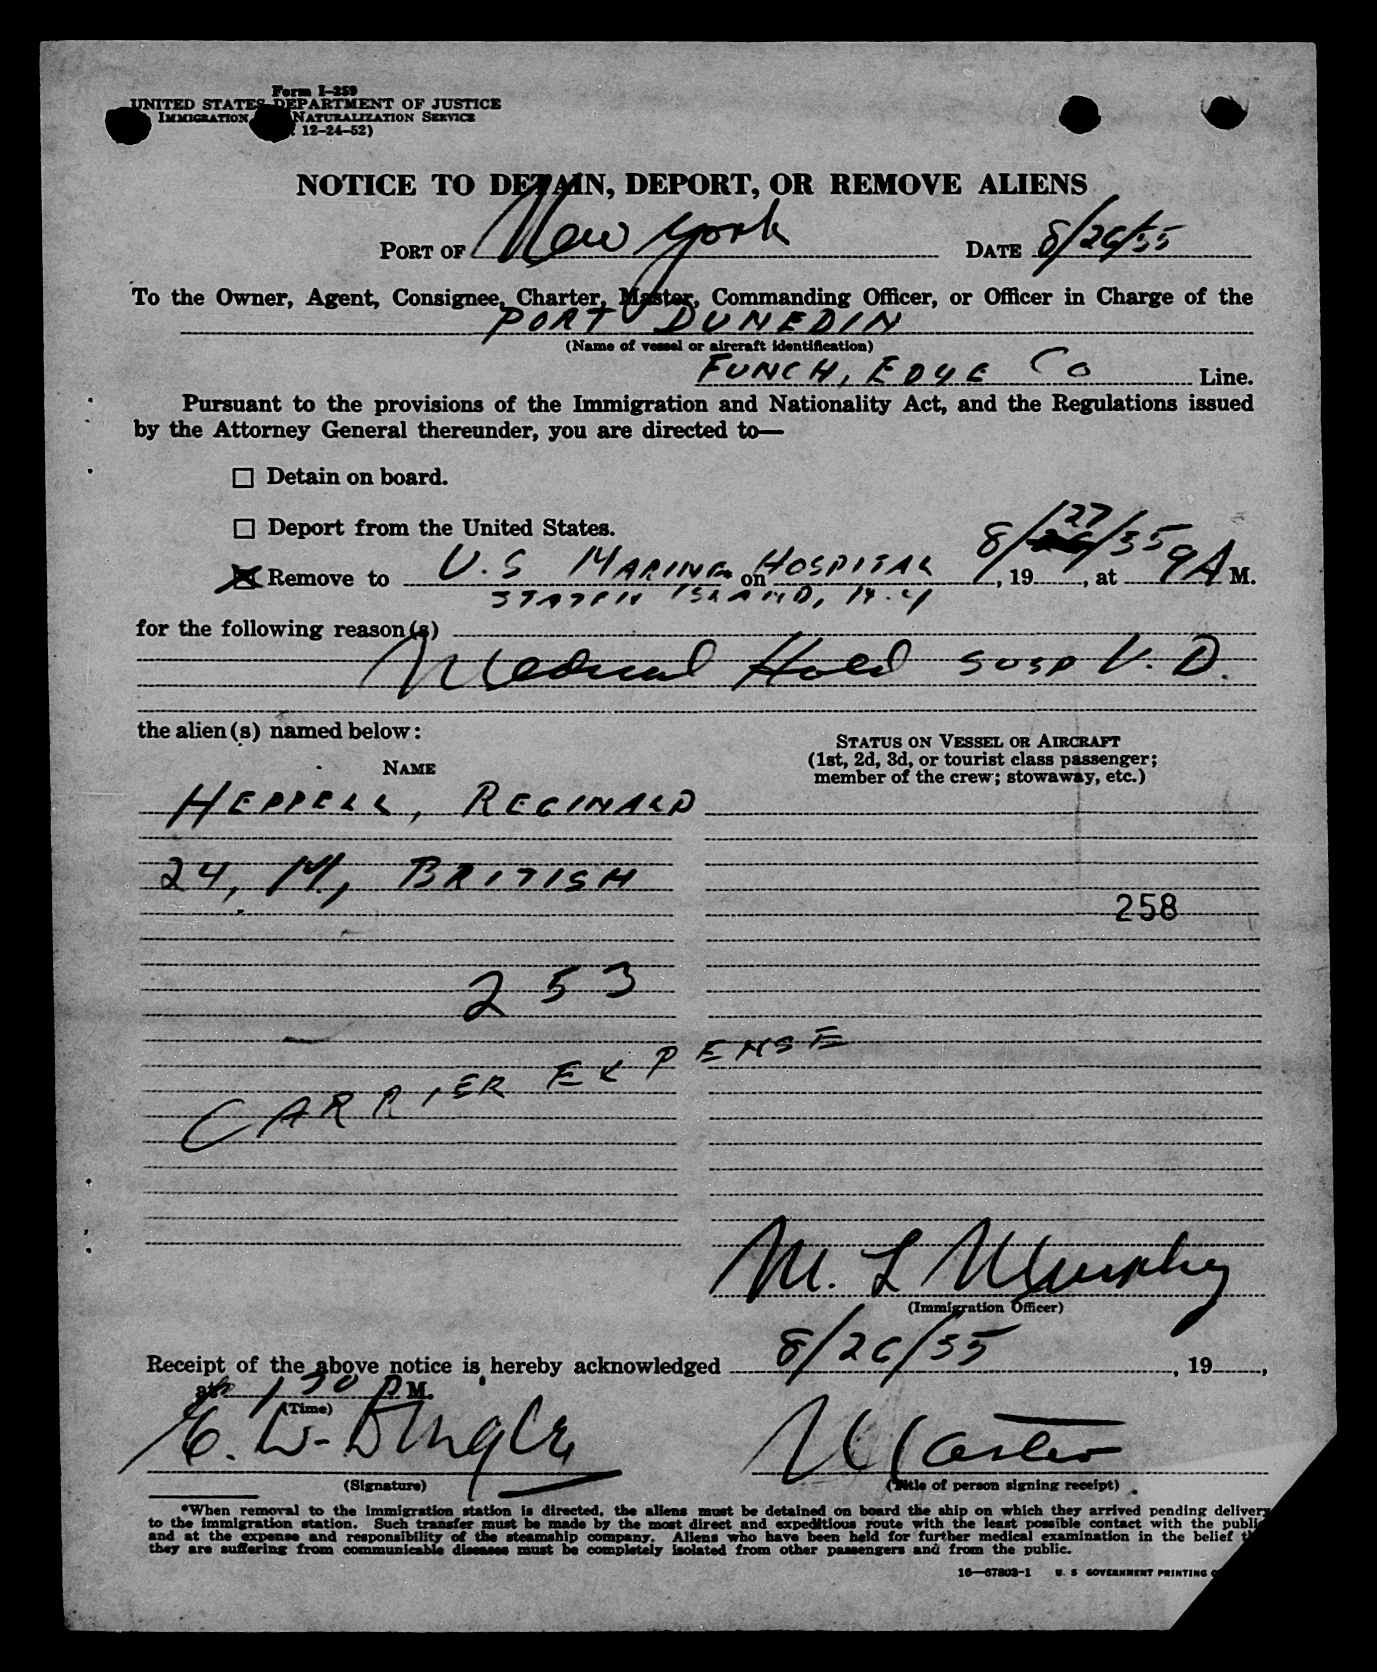 Form I-259
UNITED STATES DEPARTMENT OF JUSTICE
IMMIGRATION NATURALIZATION SERVICE
12-24-52)
NOTICE TO DETAIN, DEPORT, OR REMOVE ALIENS
PORT OF New York DATE 8/26/55
To the Owner, Agent, Consignee, Charter, Master, Commanding Officer, or Officer in Charge of the
PORT DUNEDIN
(Name of vessel or aircraft identification)
FUNCH, EDYE Co Line.
Pursuant to the provisions of the Immigration and Nationality Act, and the Regulations issued
by the Attorney General thereunder, you are directed to—
☐ Detain on board.
☐ Deport from the United States.
☒ Remove to U.S MARINE on HOSPITAL 8/27/55, 19 , at 9 A M.
STATEN ISLAND, N.Y
for the following reason(s)
Medical Hold SUSP V.D.
the alien(s) named below:
STATUS ON VESSEL OR AIRCRAFT
(1st, 2d, 3d, or tourist class passenger;
member of the crew; stowaway, etc.)
NAME
HEPPELL, REGINALD
24, M, BRITISH
258
253
CARRIER EXPENSE
M. L Murphy
(Immigration Officer)
Receipt of the above notice is hereby acknowledged 8/26/55, 19 ,
at 1 30 P M.
(Time)
E. W. Dingle Master
(Signature) (Title of person signing receipt)
*When removal to the immigration station is directed, the aliens must be detained on board the ship on which they arrived pending delivery
to the immigration station. Such transfer must be made by the most direct and expeditious route with the least possible contact with the public
and at the expense and responsibility of the steamship company. Aliens who have been held for further medical examination in the belief
they are suffering from communicable diseases must be completely isolated from other passengers and from the public.
16—67803-1 U. S GOVERNMENT PRINTING